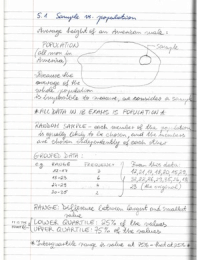 5.1 Sample vs. population
Average height of an American male:
POPULATION
Sample
(all men in
America)
Measure the
average of the
whole population
is impossible to measure, so consider a sample
*ALL DATA IN IB EXAMS IS POPULATION*
RANDOM SAMPLE - each member of the population
is equally likely to be chosen, and the members
are chosen independently of each other
GROUPED DATA:
e.g. RANGE FREQUENCY From this data
RANGE: Difference between largest and smallest
value
LOWER QUARTILE: 25% of the values
UPPER QUARTILE: 75% of the values
* Interquartile range is value at 75% - that at 25% *